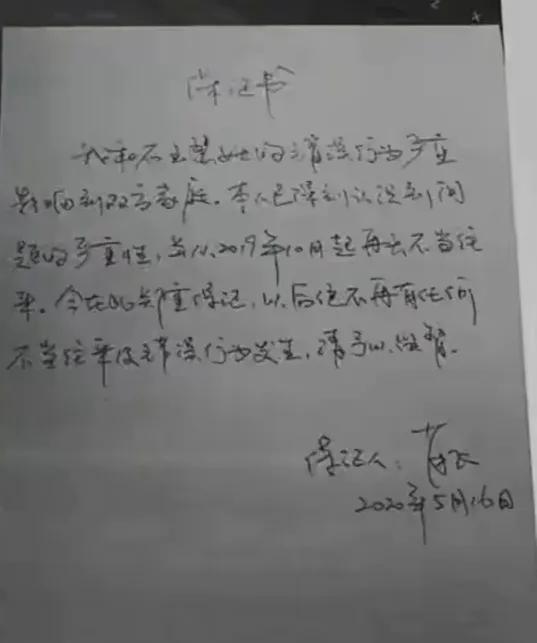 保证书
我和石玉莹女士的错误行为严重
影响到双方家庭。本人已深刻认识到问
题的严重性,并从2019年10月起再无不当往
来。今在此郑重保证,以后绝不再有任何
不当往来及错误行为发生,请予以监督。
保证人:
2020年5月16日